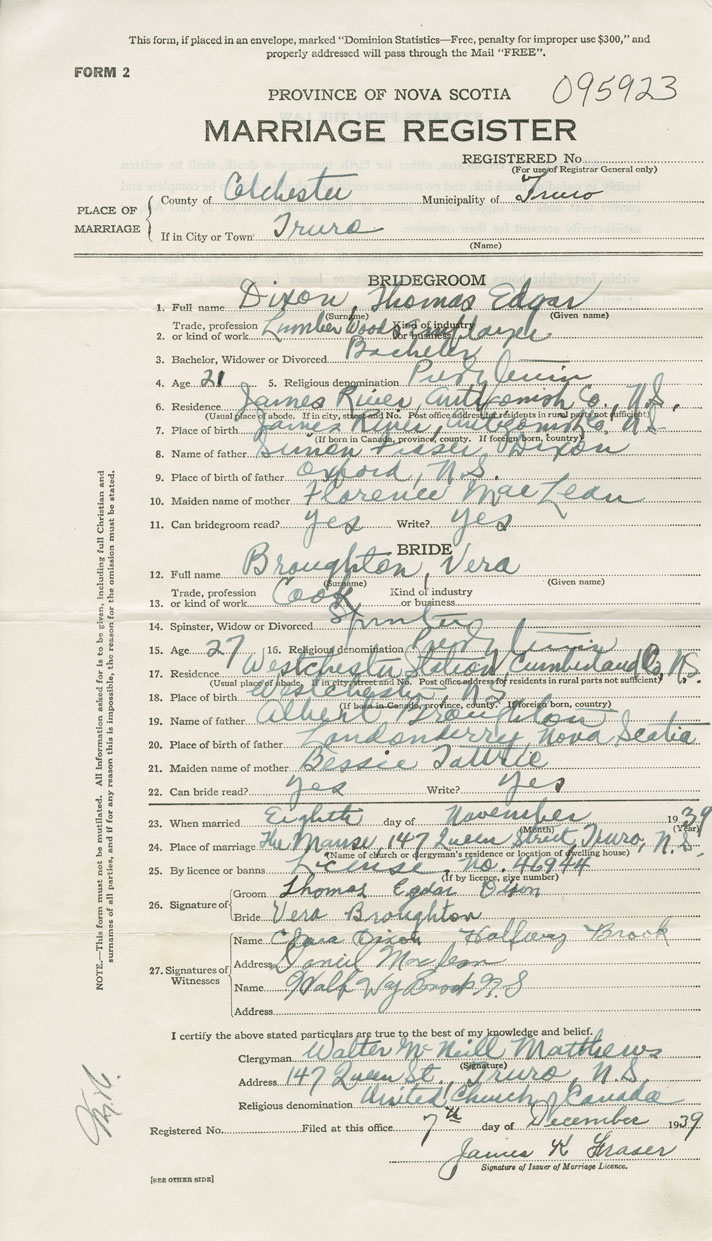 This form, if placed in an envelope, marked "Dominion Statistics—Free, penalty for improper use $300," and
properly addressed will pass through the Mail "FREE".
FORM 2
095923
PROVINCE OF NOVA SCOTIA
MARRIAGE REGISTER
REGISTERED No.
(For use of Registrar General only)
PLACE OF MARRIAGE
County of Colchester Municipality of Truro
If in City or Town: Truro
(Name)
BRIDEGROOM
1. Full name Dixon, Thomas Edgar
(Surname) (Given name)
2. Trade, profession or kind of work Lumber Woods Employee Kind of industry or business
3. Bachelor, Widower or Divorced Bachelor
4. Age 21 5. Religious denomination
6. Residence James River, Antigonish Co., N.S.
(Usual place of abode. If in city, street and No. Post office address for residents in rural parts not sufficient)
7. Place of birth James River, Antigonish Co. N.S.
(If born in Canada, province, county. If foreign born, country)
8. Name of father Simon Fraser Dixon
9. Place of birth of father Oxford, N.S.
10. Maiden name of mother Florence MacLean
11. Can bridegroom read? yes Write? yes
BRIDE
12. Full name Broughton, Vera
(Surname) (Given name)
13. Trade, profession or kind of work Cook Kind of industry or business
14. Spinster, Widow or Divorced Spinster
15. Age 27 16. Religious denomination
17. Residence Westchester Station, Cumberland Co, N.S.
(Usual place of abode. If in city, street and No. Post office address for residents in rural parts not sufficient)
18. Place of birth Westchester, N.S.
(If born in Canada, province, county. If foreign born, country)
19. Name of father Albert Broughton
20. Place of birth of father Londonderry, Nova Scotia
21. Maiden name of mother Bessie Tattrie
22. Can bride read? yes Write? yes
23. When married Eighth day of November 1939
(Month) (Year)
24. Place of marriage The Manse, 147 Queen Street, Truro, N.S.
(Name of church or clergyman's residence or location of dwelling house)
25. By licence or banns License, No. 46944
(If by licence, give number)
26. Signature of
Groom Thomas Egdar Dixon
Bride Vera Broughton
27. Signatures of Witnesses
Name Clara Dixon Halfway Brook
Address Daniel MacLean
Name Half Way Brook N.S
Address
I certify the above stated particulars are true to the best of my knowledge and belief.
Clergyman Walter McNeill Matthews
(Signature)
Address 147 Queen St., Truro, N.S.
Religious denomination United Church of Canada
Registered No. Filed at this office 7th day of December 1939
James K Fraser
Signature of Issuer of Marriage Licence.
[SEE OTHER SIDE]
NOTE.—This form must not be mutilated. All information asked for is to be given, including full Christian and
surnames of all parties, and if for any reason this is impossible, the reason for the omission must be stated.